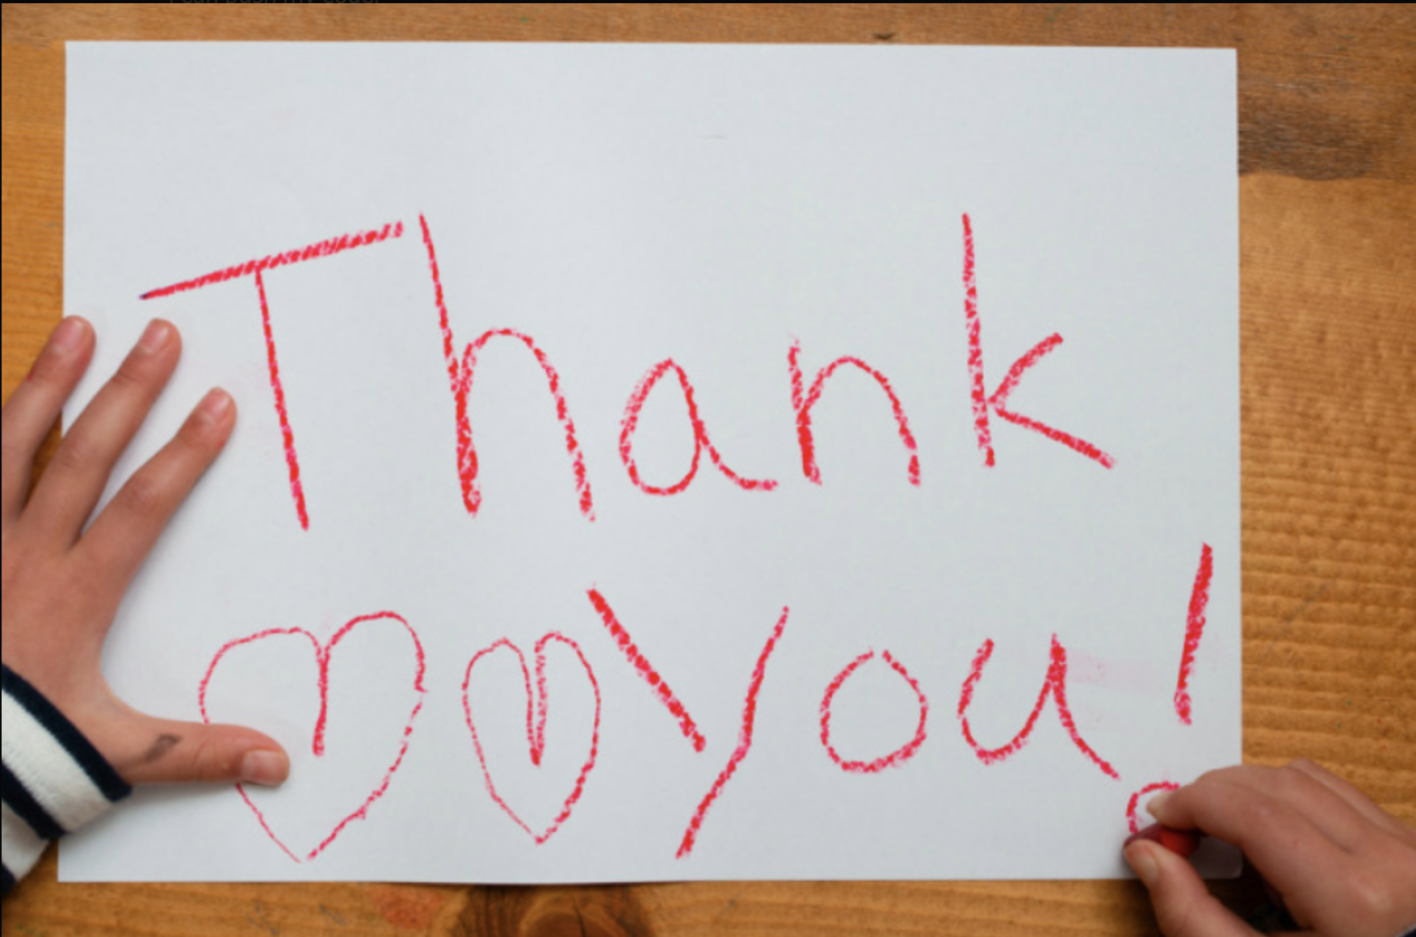 Thank
♡♡ You!